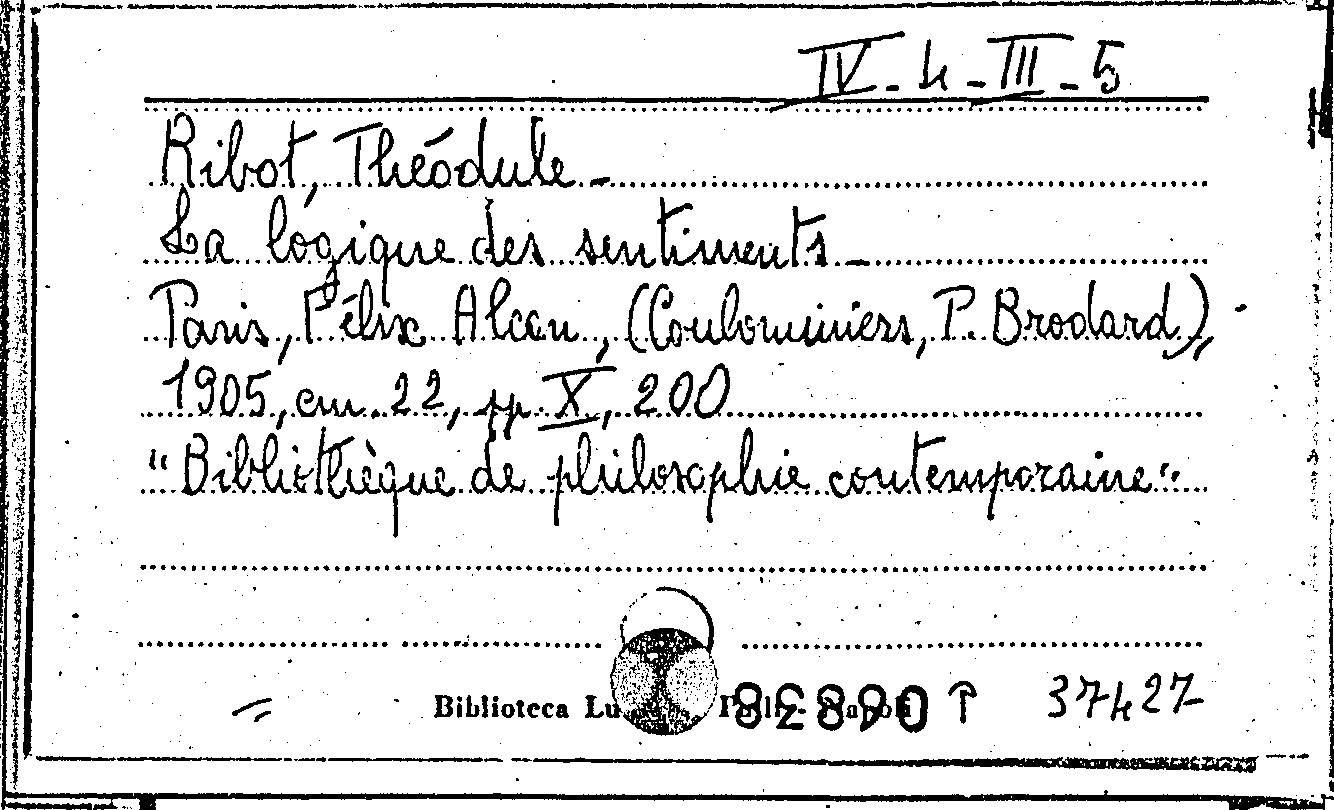 IV-4-III-5
Ribot, Théodule -
La logique des sentiments -
Paris, Félix Alcan, (Coulommiers, P. Brodard),
1905, cm. 22, pp. X, 200
"Bibliothèque de philosophie contemporaine".
Biblioteca 37427